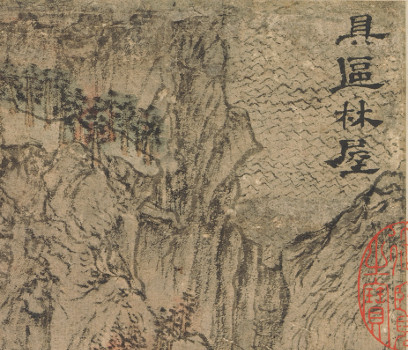 具區林屋